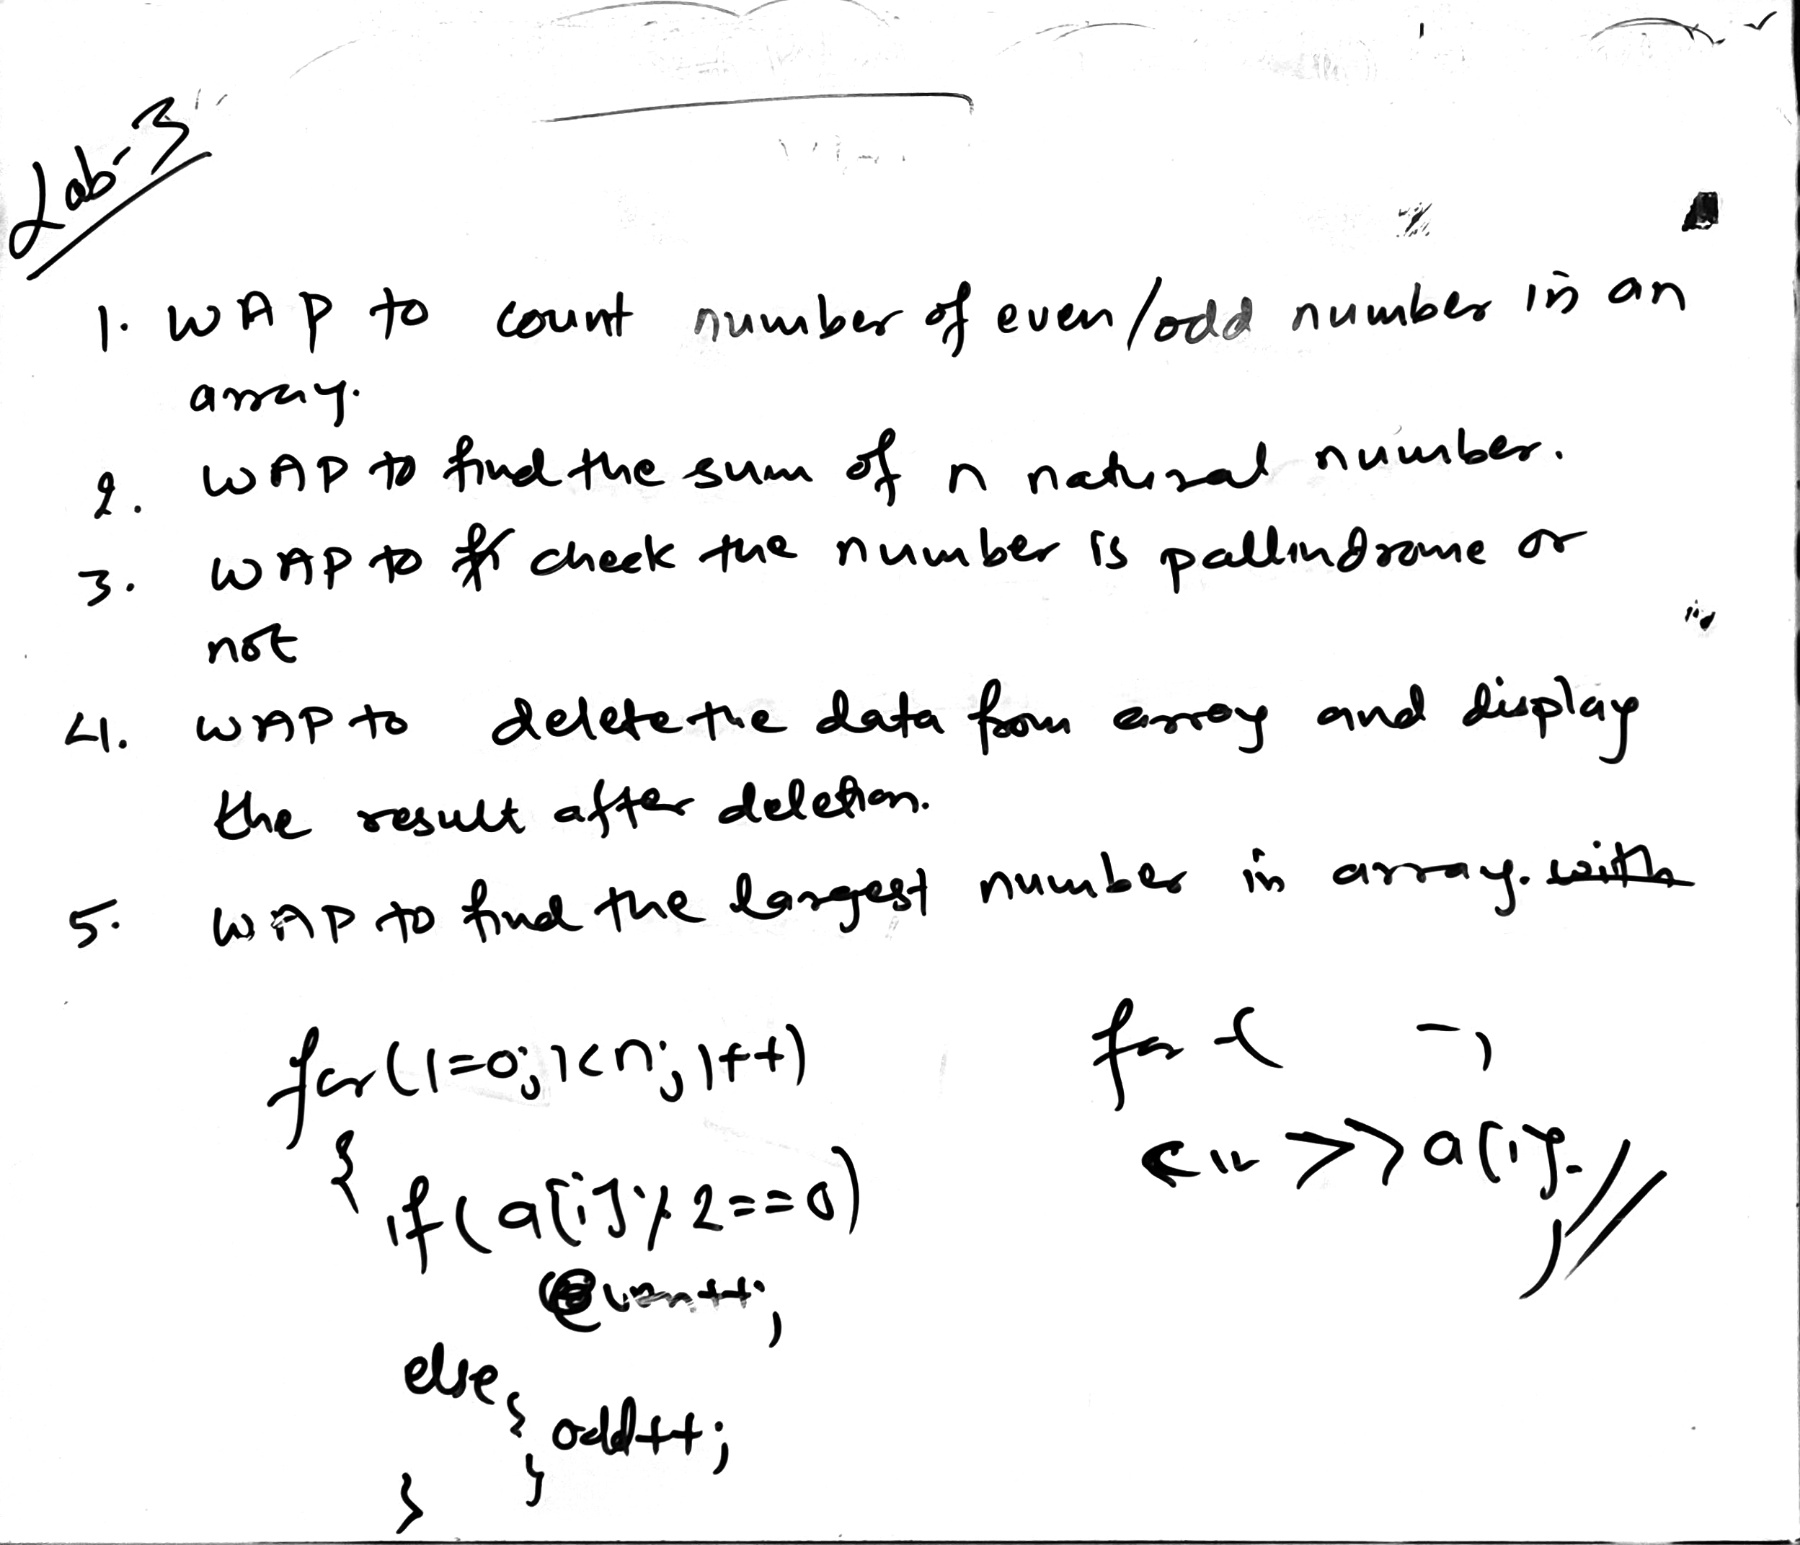 Lab-3
1. WAP to count number of even/odd number in an
array.
2. WAP to find the sum of n natural number.
3. WAP to check the number is pallindrome or
not
4. WAP to delete the data from array and display
the result after deletion.
5. WAP to find the largest number in array. with
for(i=0;i<n;i++)
{
if(a[i]%2==0)
even++;
else
{ odd++;
}
}
for( )
cin >>a[i];